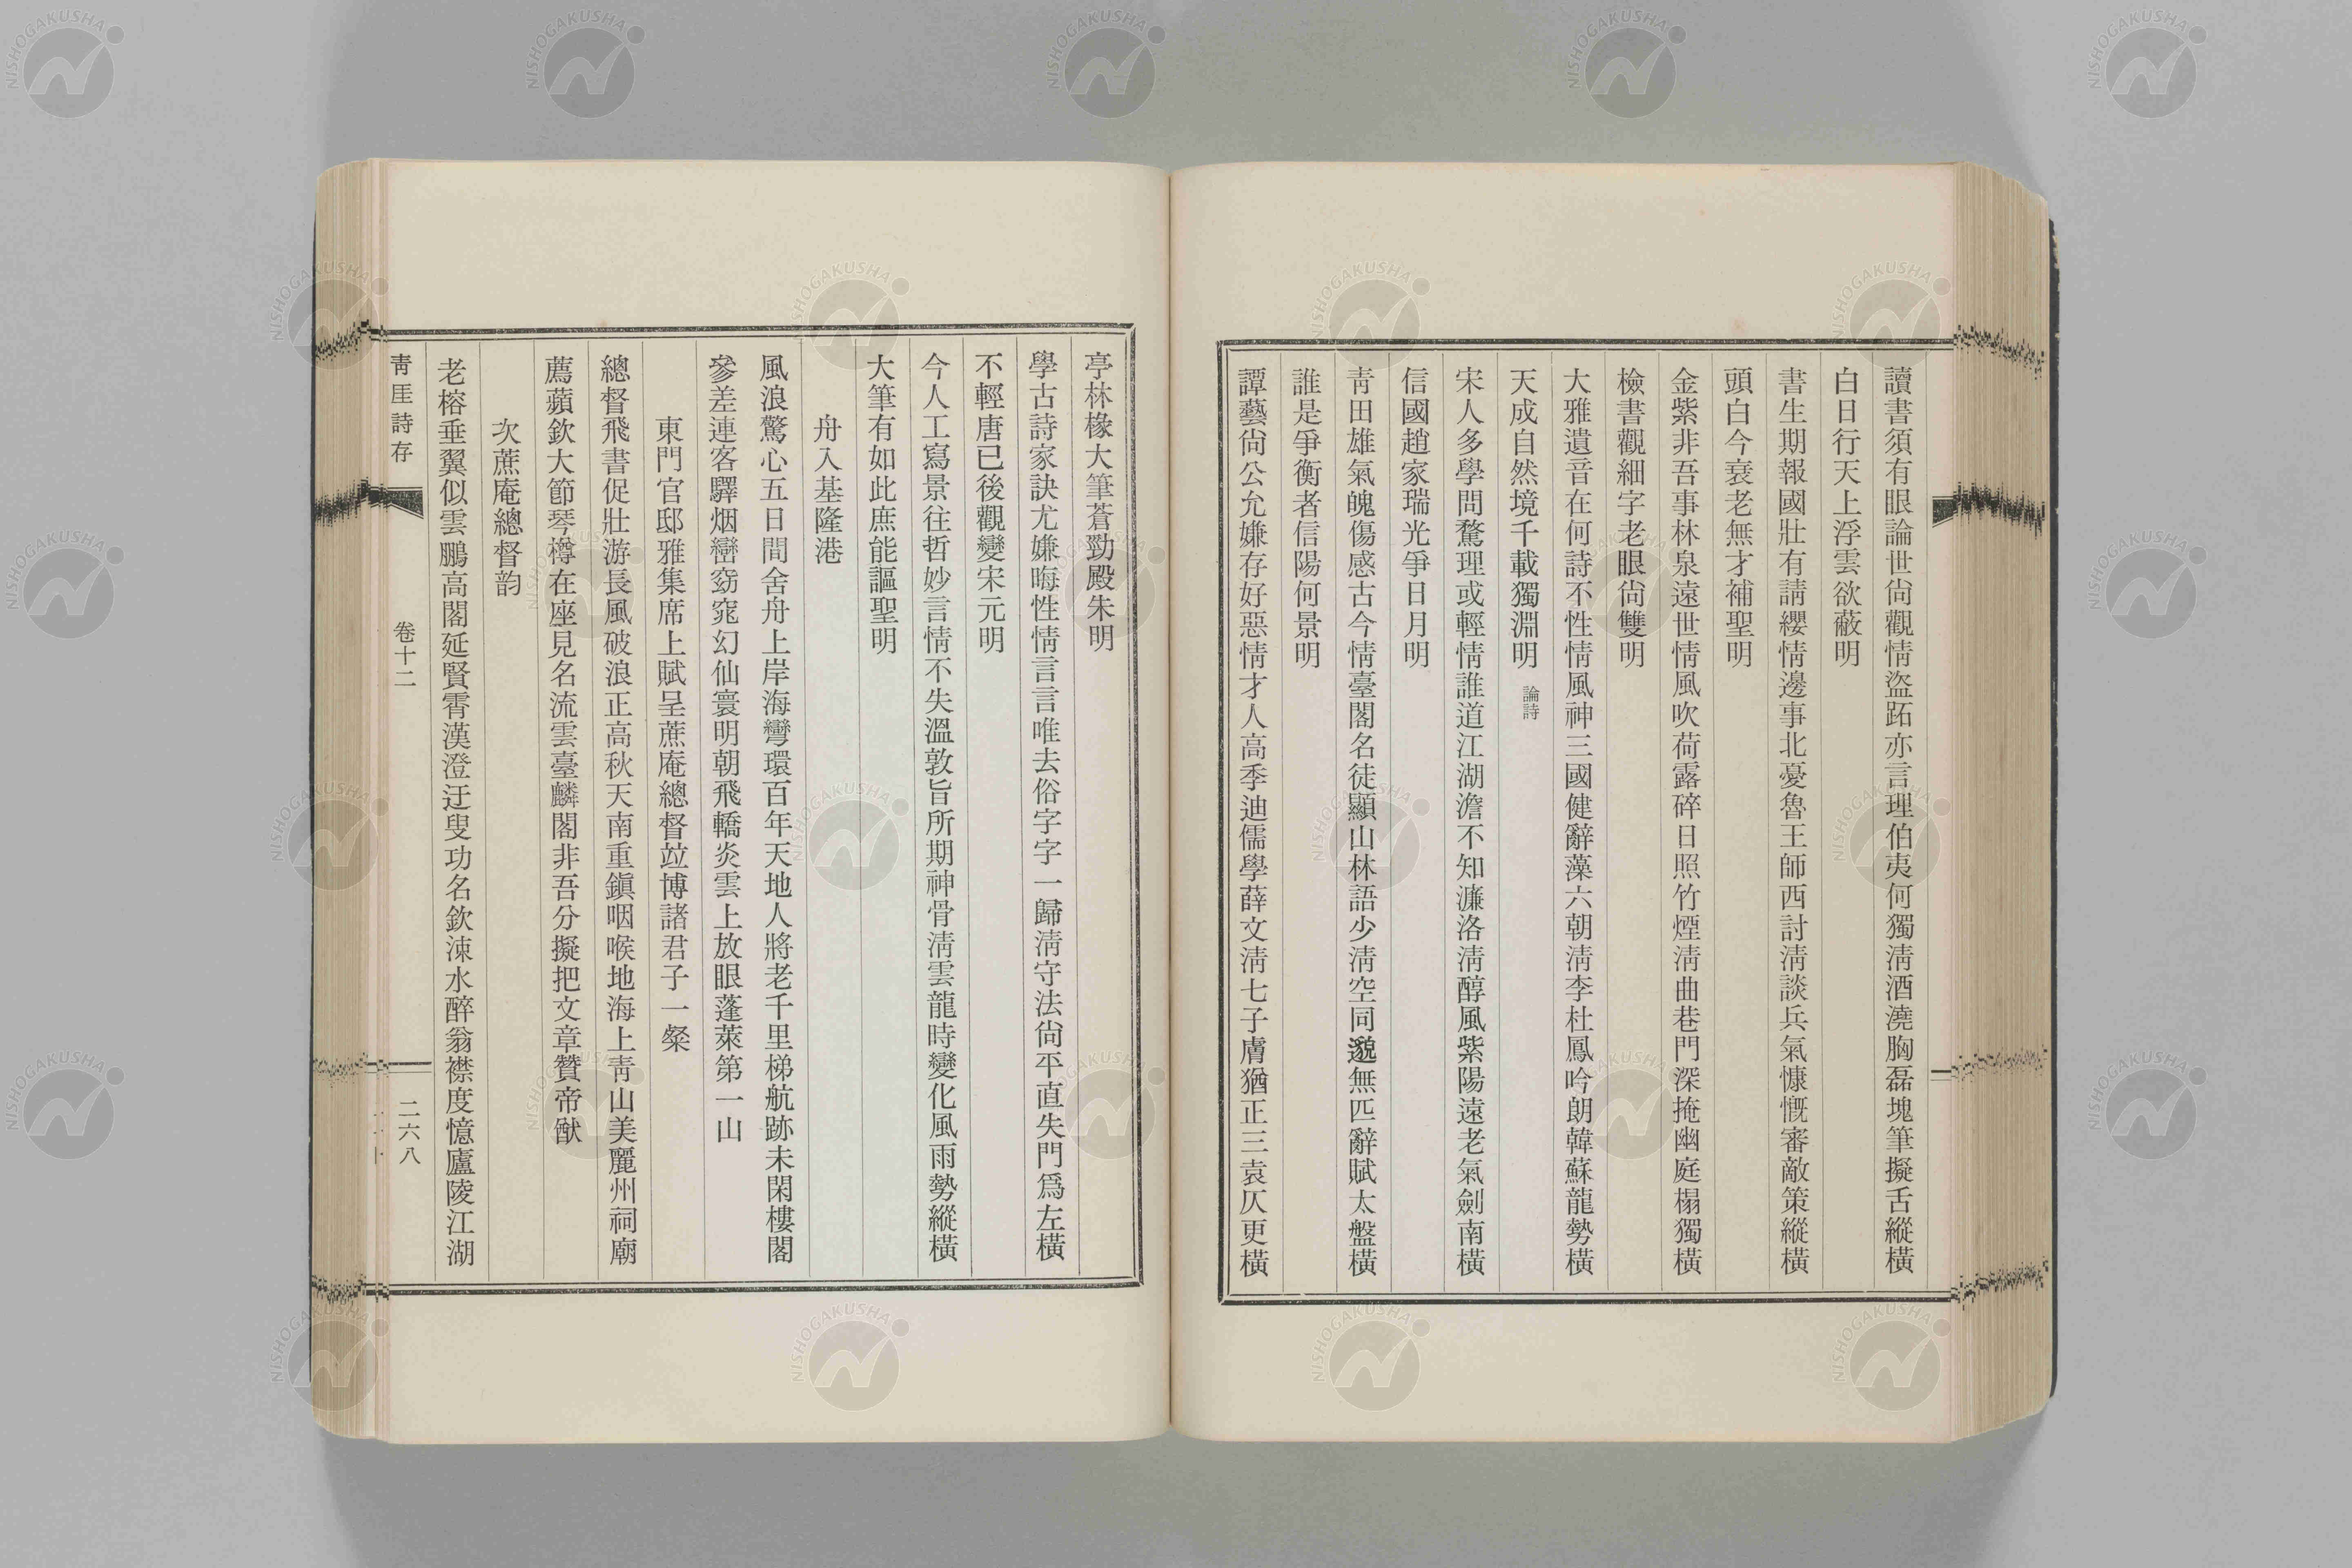 讀書須有眼論世尙觀情盜跖亦言理伯夷何獨淸酒澆胸磊塊筆擬舌縱橫
白日行天上浮雲欲蔽明
書生期報國壯有請纓情邊事北憂魯王師西討淸談兵氣慷慨審敵策縱橫
頭白今衰老無才補聖明
金紫非吾事林泉遠世情風吹荷露碎日照竹煙淸曲巷門深掩幽庭榻獨橫
檢書觀細字老眼尙雙明
大雅遺音在何詩不性情風神三國健辭藻六朝淸李杜鳳吟朗韓蘇龍勢橫
天成自然境千載獨淵明 論詩
宋人多學問騖理或輕情誰道江湖澹不知濂洛淸醇風紫陽遠老氣劍南橫
信國趙家瑞光爭日月明
靑田雄氣魄傷感古今情臺閣名徒顯山林語少淸空同邈無匹辭賦太盤橫
誰是爭衡者信陽何景明
譚藝尙公允嫌存好惡情才人高季迪儒學薛文淸七子膚猶正三袁仄更橫
亭林椽大筆蒼勁殿朱明
學古詩家訣尤嫌晦性情言言唯去俗字字一歸淸守法尙平直失門爲左橫
不輕唐已後觀變宋元明
今人工寫景往哲妙言情不失溫敦旨所期神骨淸雲龍時變化風雨勢縱橫
大筆有如此庶能謳聖明
舟入基隆港
風浪驚心五日間舍舟上岸海灣環百年天地人將老千里梯航跡未閑樓閣
參差連客驛烟巒窈窕幻仙寰明朝飛轎炎雲上放眼蓬萊第一山
東門官邸雅集席上賦呈蔗庵總督竝博諸君子一粲
總督飛書促壯游長風破浪正高秋天南重鎭咽喉地海上靑山美麗州祠廟
薦蘋欽大節琴樽在座見名流雲臺麟閣非吾分擬把文章贊帝猷
次蔗庵總督韵
老榕垂翼似雲鵬高閣延賢霄漢澄迂叟功名欽涑水醉翁襟度憶廬陵江湖
靑厓詩存
卷十二
二六八
NISHOGAKUSHA